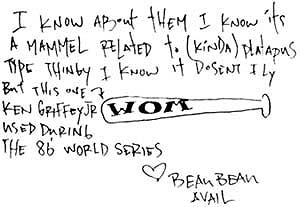 I KNOW ABOUT THEM I KNOW ITS
A MAMMEL RELATED TO (KINDA) PLATAPUS
TYPE THINGY I KNOW IT DOSENT FLY
BUT THIS ONE →
KEN GRIFFEY JR WOM
USED DURING
THE 86' WORLD SERIES
♡ BEAU BEAU
AVAIL